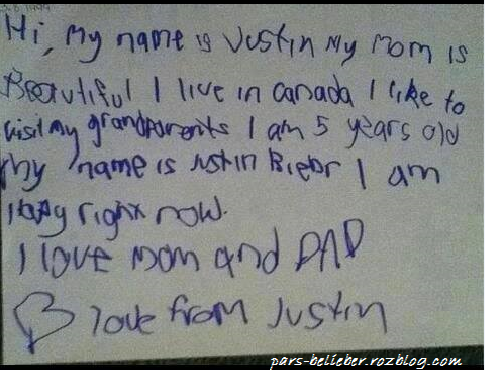 Hi, My name is Justin My Mom is
Beautiful I live in canada I like to
visit my grandparents I am 5 years old
My name is Justin Bieber I am
Happy right now.
I love Mom and DAD
love from Justin
pars-belieber.rozblog.com